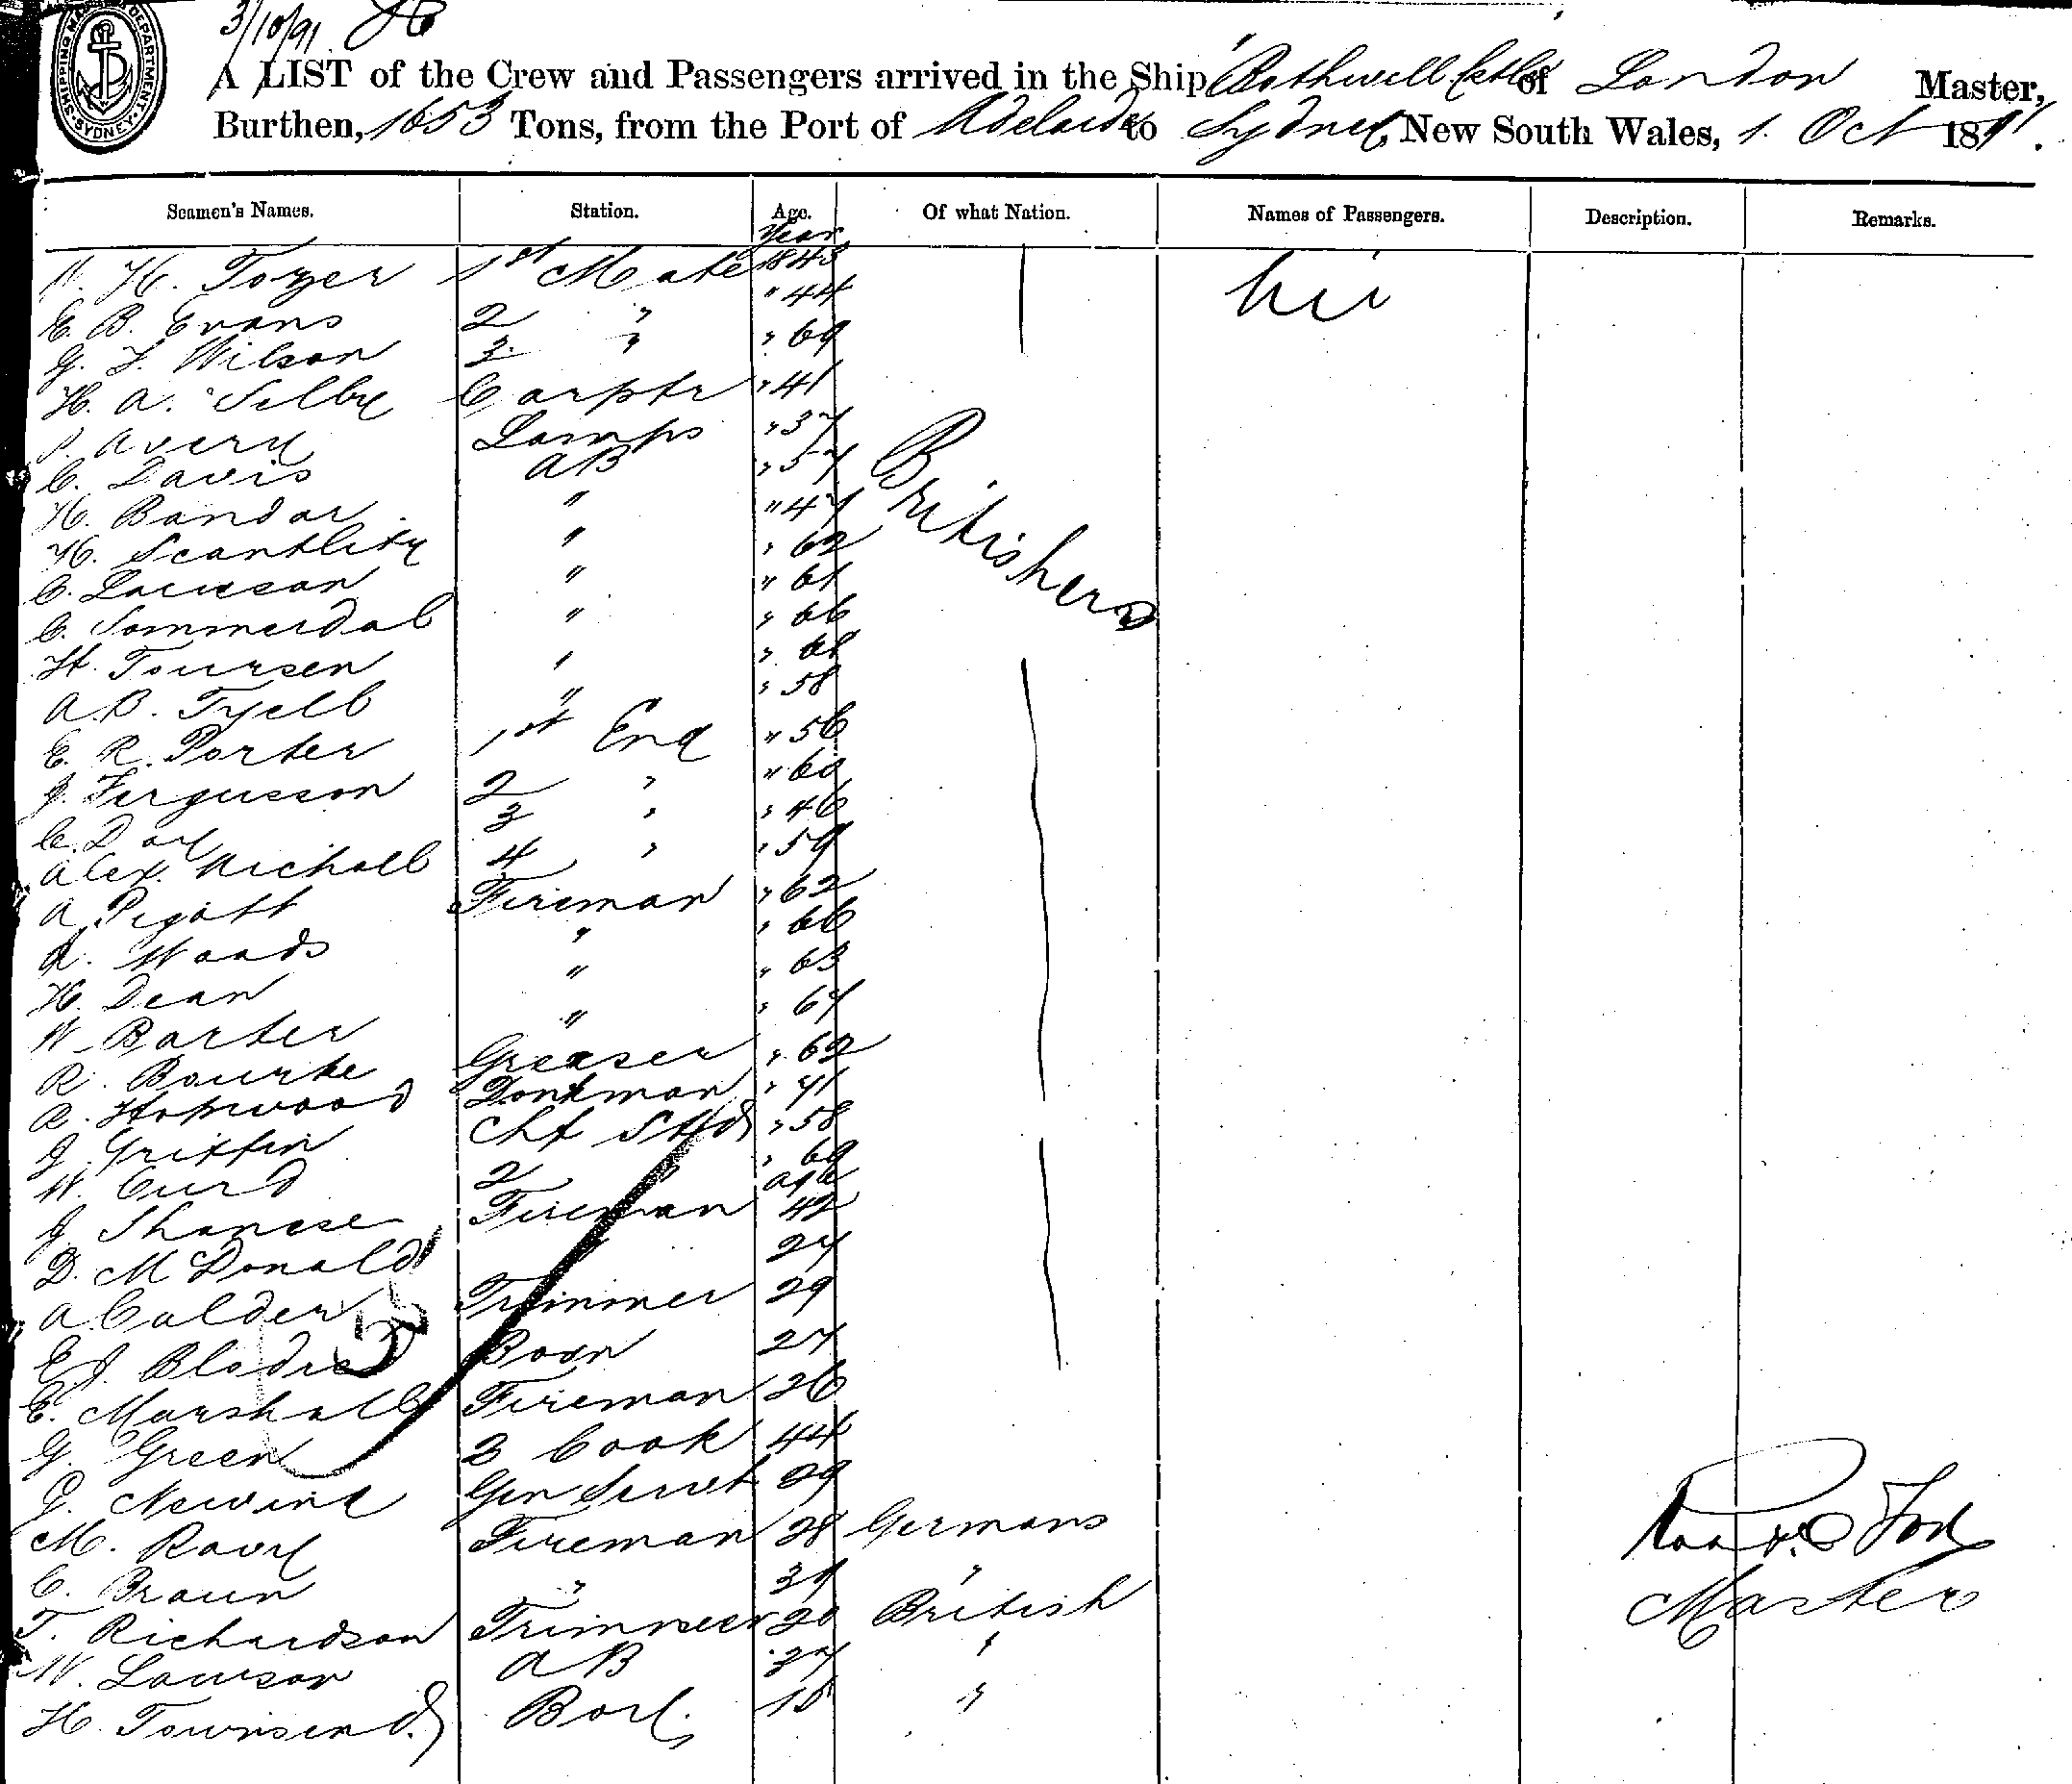 3/10/91
SHIPPING MASTER'S DEPARTMENT SYDNEY
A LIST of the Crew and Passengers arrived in the Ship Bothwell Castle of London Master,
Burthen, 1653 Tons, from the Port of Adelaide to Sydney, New South Wales, 1. Oct 1891.
Seamen's Names. Station. Age. Of what Nation. Names of Passengers. Description. Remarks.
Year
H. Tozer 1st Mate 1843 Nil
E. B. Evans 2 " " 44
G. F. Wilson 3 " " 69
H. A. Selby Carptr " 41
Avery Lamps " 37
C. Davis AB " 57
H. Bandar " " 47
H. Scantlity " " 62
C. Lawson " " 61
Britishers
C. Sommerdal " " 66
H. Toursen " "
A. B. Tyell " " 58
E. R. Porter 1st Eng " 56
J. Fergusson 2 " " 60
C. Day 3 " " 46
Alex. Nicholl 4 " " 59
A Pigott Fireman " 62
Woods " " 66
H. Dean " " 63
W. Barter " " 67
R. Bourke Greaser " 62
R. Hopwood Donkman " 71
J. Griffin Chf Stwd " 58
W. Curd 2 " 69
Age
J. Fireman 42
D. McDonald 27
A Calder Trimmer 29
E. J. Bladie Bosn 27
E. Marshall Fireman 26
G. Green 2 Cook 44
G. Gen Servt 29
M. Fireman 28 Germans
C. Braun " "
T. Richardson Trimmer 20 British
W. Lawson AB 27 "
H. Townsend Boy. 15 "
Master